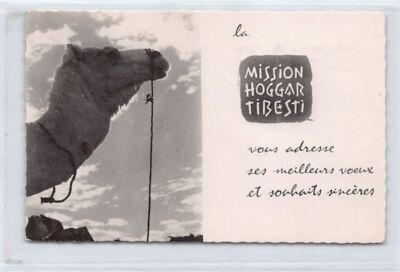 la
MISSION
HOGGAR
TIBESTI
vous adresse
ses meilleurs voeux
et souhaits sincères